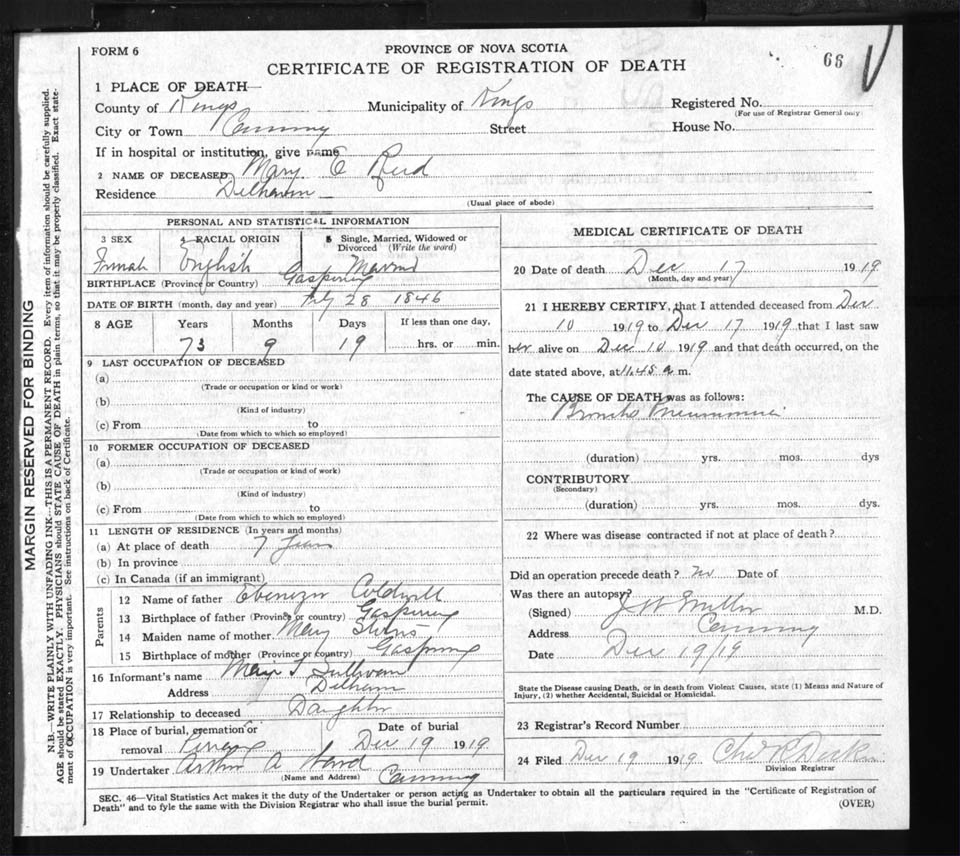 FORM 6
PROVINCE OF NOVA SCOTIA
CERTIFICATE OF REGISTRATION OF DEATH
66
1 PLACE OF DEATH
County of Kings Municipality of Kings Registered No.
(For use of Registrar General only)
City or Town Canning Street House No.
If in hospital or institution, give name
2 NAME OF DECEASED Mary E Reid
Residence Delhaven
(Usual place of abode)
PERSONAL AND STATISTICAL INFORMATION
3 SEX 4 RACIAL ORIGIN 5 Single, Married, Widowed or Divorced (Write the word)
Female English Married
BIRTHPLACE (Province or Country) Gaspereau
DATE OF BIRTH (month, day and year) 28 1846
8 AGE Years Months Days If less than one day,
73 9 19 hrs. or min.
9 LAST OCCUPATION OF DECEASED
(a)
(Trade or occupation or kind or work)
(b)
(Kind of industry)
(c) From to
(Date from which to which so employed)
10 FORMER OCCUPATION OF DECEASED
(a)
(Trade or occupation or kind of work)
(b)
(Kind of industry)
(c) From to
(Date from which to which so employed)
11 LENGTH OF RESIDENCE (In years and months)
(a) At place of death 7 Years
(b) In province
(c) In Canada (if an immigrant)
Parents
12 Name of father Ebenezer Coldwell
13 Birthplace of father (Province or country) Gaspereau
14 Maiden name of mother Mary
15 Birthplace of mother (Province or country) Gaspereau
16 Informant's name Sullivan
Address Delhaven
17 Relationship to deceased Daughter
18 Place of burial, cremation or removal Date of burial
Dec 19 1919
19 Undertaker Arthur A Ward
(Name and Address) Canning
MEDICAL CERTIFICATE OF DEATH
20 Date of death Dec 17 1919
(Month, day and year)
21 I HEREBY CERTIFY, that I attended deceased from Dec
10 1919 to Dec 17 1919 that I last saw
her alive on Dec 10 1919 and that death occurred, on the
date stated above, at 11.45 a m.
The CAUSE OF DEATH was as follows:
Broncho Pneumonia
(duration) yrs. mos. dys
CONTRIBUTORY
(Secondary)
(duration) yrs. mos. dys.
22 Where was disease contracted if not at place of death?
Did an operation precede death? no Date of
Was there an autopsy?
(Signed) J W Miller M.D.
Address Canning
Date Dec 19/19
State the Disease causing Death, or in death from Violent Causes, state (1) Means and Nature of
Injury, (2) whether Accidental, Suicidal or Homicidal.
23 Registrar's Record Number
24 Filed Dec 19 1919
Division Registrar
SEC. 46—Vital Statistics Act makes it the duty of the Undertaker or person acting as Undertaker to obtain all the particulars required in the "Certificate of Registration of
Death" and to fyle the same with the Division Registrar who shall issue the burial permit.
(OVER)
MARGIN RESERVED FOR BINDING
N.B.—WRITE PLAINLY WITH UNFADING INK—THIS IS A PERMANENT RECORD. Every item of information should be carefully supplied.
AGE should be stated EXACTLY. PHYSICIANS should STATE CAUSE OF DEATH in plain terms, so that it may be properly classified. Exact state-
ment of OCCUPATION is very important. See instructions on back of Certificate.